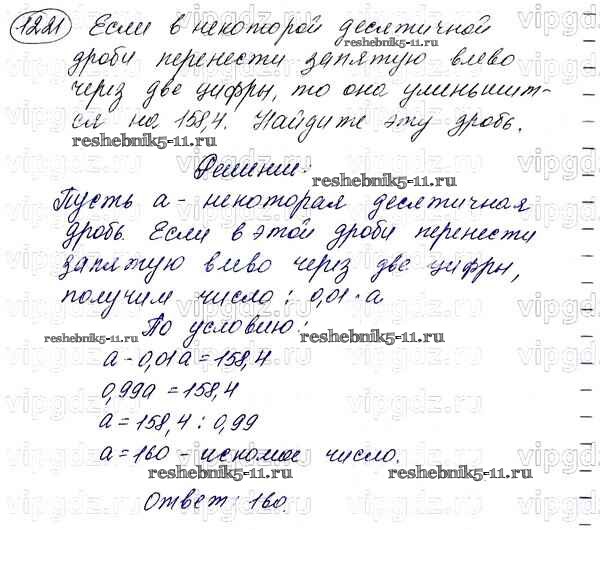 1221 Если в некоторой десятичной
дроби перенести запятую влево
через две цифры, то она уменьшит-
ся на 158,4. Найдите эту дробь.
reshebnik5-11.ru
reshebnik5-11.ru
Решение:
reshebnik5-11.ru
Пусть а - некоторая десятичная
дробь. Если в этой дроби перенести
запятую влево через две цифры,
получим число: 0,01·а
По условию:
reshebnik5-11.ru
reshebnik5-11.ru
а - 0,01а = 158,4
0,99а = 158,4
а = 158,4 : 0,99
а = 160 - искомое число.
reshebnik5-11.ru
reshebnik5-11.ru
Ответ: 160.